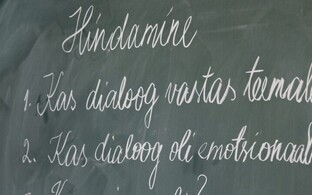 Hindamine
1. Kas dialoog vastas teemal
2. Kas dialoog oli emotsionaal